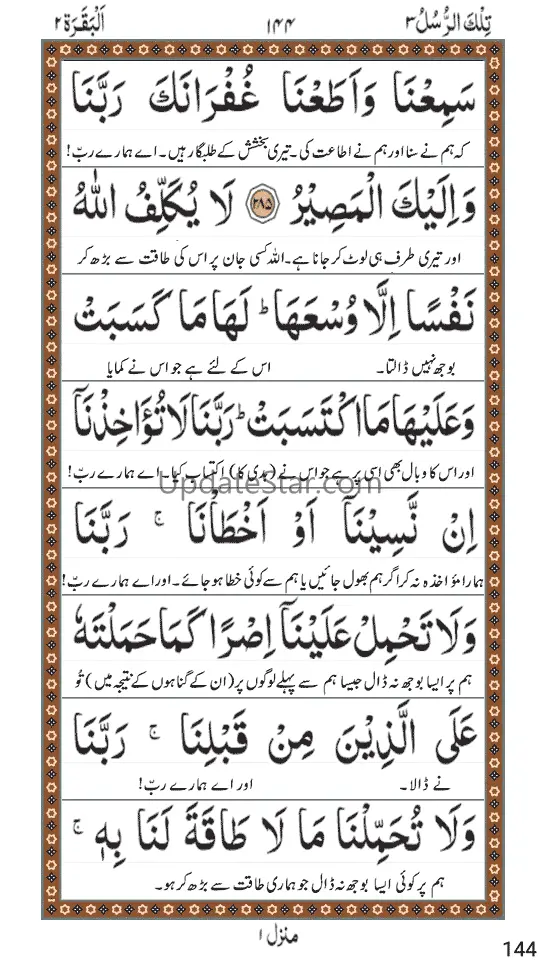 تِلْكَ الرُّسُلُ ٣ ١٤٤ اَلْبَقَرَة ٢
سَمِعْنَا وَاَطَعْنَا غُفْرَانَكَ رَبَّنَا
کہ ہم نے سنا اور ہم نے اطاعت کی۔ تیری بخشش کے طلبگار ہیں۔ اے ہمارے ربّ!
وَاِلَيْكَ الْمَصِيْرُ ٢٨٥ لَا يُكَلِّفُ اللّٰهُ
اور تیری طرف ہی لوٹ کر جانا ہے۔ اللہ کسی جان پر اس کی طاقت سے بڑھ کر
نَفْسًا اِلَّا وُسْعَهَا ؕ لَهَا مَا كَسَبَتْ
بوجھ نہیں ڈالتا۔ اس کے لئے ہے جو اس نے کمایا
وَعَلَيْهَا مَا اكْتَسَبَتْ ؕ رَبَّنَا لَا تُؤَاخِذْنَاۤ
اور اس کا وبال بھی اسی پر ہے جو اس نے (بدی کا) اکتساب کیا۔ اے ہمارے ربّ!
UpdateStar.com
اِنْ نَّسِيْنَاۤ اَوْ اَخْطَاْنَا ۚ رَبَّنَا
ہمارا مؤاخذہ نہ کر اگر ہم بھول جائیں یا ہم سے کوئی خطا ہو جائے۔ اور اے ہمارے ربّ!
وَلَا تَحْمِلْ عَلَيْنَاۤ اِصْرًا كَمَا حَمَلْتَهٗ
ہم پر ایسا بوجھ نہ ڈال جیسا ہم سے پہلے لوگوں پر (ان کے گناہوں کے نتیجہ میں) تُو
عَلَى الَّذِيْنَ مِنْ قَبْلِنَا ۚ رَبَّنَا
نے ڈالا۔ اور اے ہمارے ربّ!
وَلَا تُحَمِّلْنَا مَا لَا طَاقَةَ لَنَا بِهٖ ۚ
ہم پر کوئی ایسا بوجھ نہ ڈال جو ہماری طاقت سے بڑھ کر ہو۔
منزل ١
144